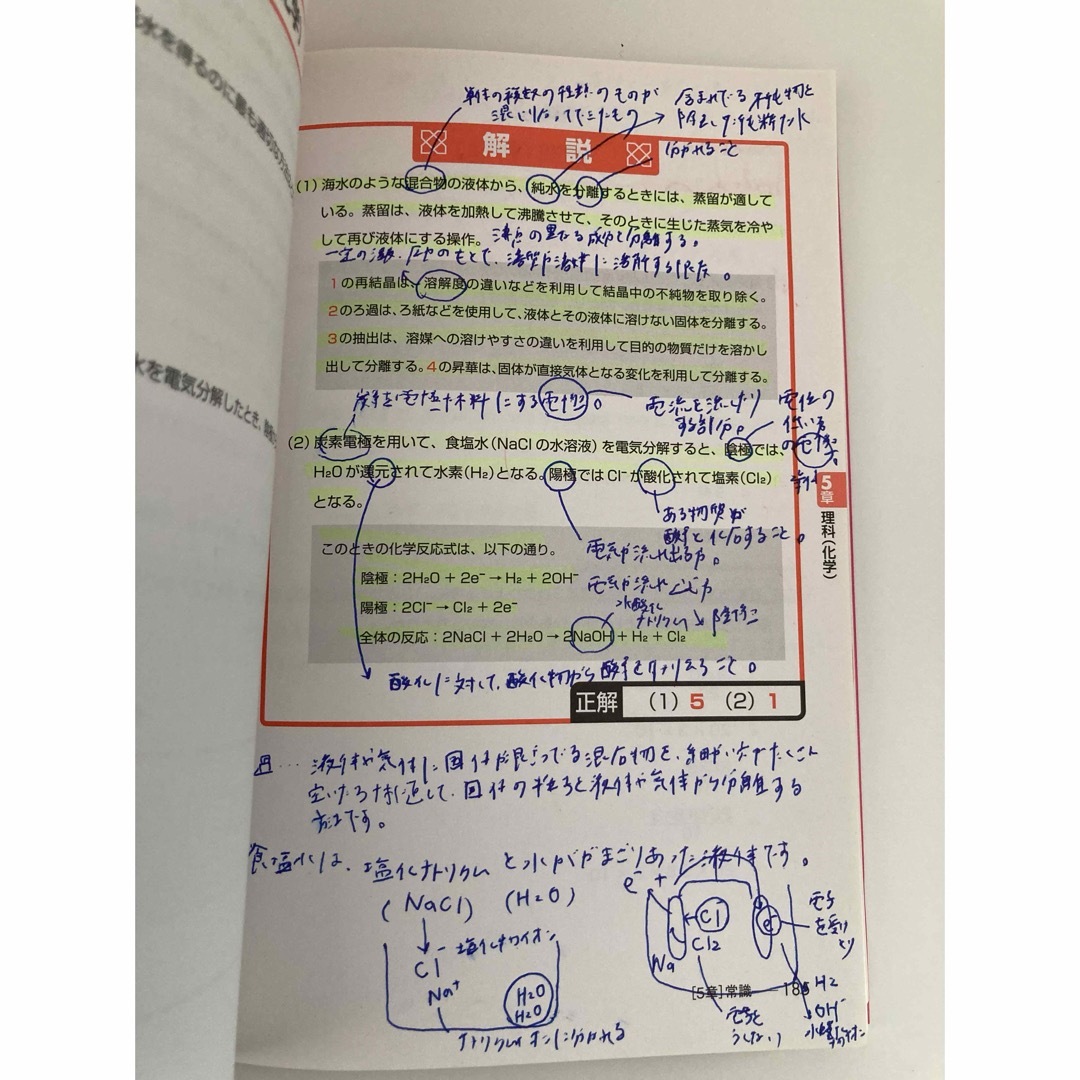 水を得るのに最も適切な方
水を電気分解したとき、
単体の複数の種類のものが
混じり合ってできたもの
含まれている不純物を
除去した純粋な水
分かれること
解説
(1) 海水のような混合物の液体から、純水を分離するときには、蒸留が適して
いる。蒸留は、液体を加熱して沸騰させて、そのときに生じた蒸気を冷や
して再び液体にする操作。
沸点の異なる成分を分離する。
一定の温度、圧力のもとで、溶質が溶媒に溶解する限度。
1の再結晶は、溶解度の違いなどを利用して結晶中の不純物を取り除く。
2のろ過は、ろ紙などを使用して、液体とその液体に溶けない固体を分離する。
3の抽出は、溶媒への溶けやすさの違いを利用して目的の物質だけを溶かし
出して分離する。4の昇華は、固体が直接気体となる変化を利用して分離する。
炭素を電極材料にする電極。
電流を流したり
する部分。
電位の
低い方
の電極。
(2) 炭素電極を用いて、食塩水(NaClの水溶液)を電気分解すると、陰極では、
H₂Oが還元されて水素(H₂)となる。陽極ではCl⁻が酸化されて塩素(Cl₂)
となる。
5章 理科(化学)
ある物質が
酸素と化合すること。
このときの化学反応式は、以下の通り。
電気が流れ出る方。
陰極：2H₂O + 2e⁻ → H₂ + 2OH⁻
電気が流れ込む方
陽極：2Cl⁻ → Cl₂ + 2e⁻
水酸化
ナトリウム
全体の反応：2NaCl + 2H₂O → 2NaOH + H₂ + Cl₂
酸化に対して、酸化物から酸素を取りえること。
正解 (1) 5 (2) 1
液体や気体に固体が混ざってる混合物を、細かい穴がたくさん
空いたろ材に通して、固体の粒子を液体や気体から分離する
方法です。
食塩水は、塩化ナトリウムと水がまざりあった液体です。
(NaCl) (H₂O)
Cl⁻ 塩化物イオン
Na⁺
H₂O
H₂O
ナトリウムイオンに分かれる
e⁻ +
Cl
Cl₂
Na
e⁻
電子
を受け
とり
H₂
OH⁻
電子を
うしない
[5章]常識